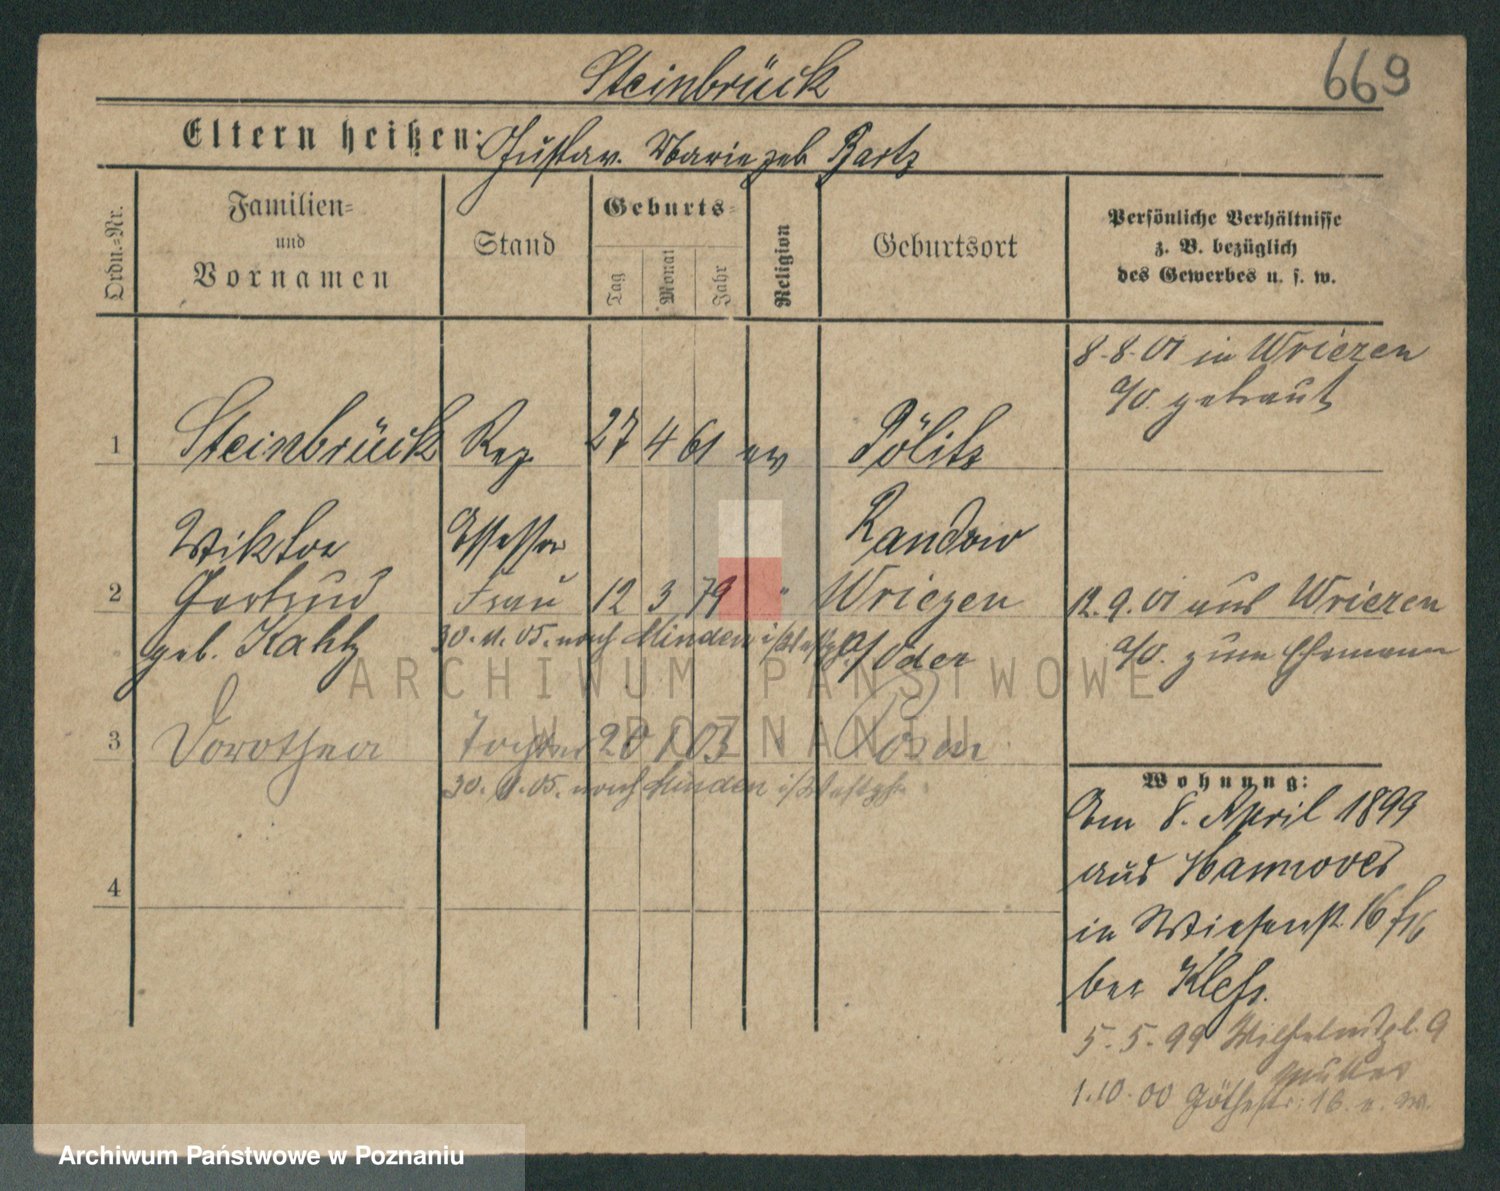 669
Steinbrück
Eltern heißen: Gustav. Marie geb Bartz
Ordn.=Nr.
Familien=
und
Vornamen
Stand
Geburts=
Tag
Monat
Jahr
Religion
Geburtsort
Persönliche Verhältnisse
z. B. bezüglich
des Gewerbes u. s. w.
8.8.01 in Wriezen
a/O. getraut
1 Steinbrück Reg. 27 4 61 ev Pölitz
Wiktor Assessor Randow
2 Gertrud Frau 12 3 79 " Wriezen 12.9.01 aus Wriezen
geb. Kahtz 30.11.05. nach Minden i/Westph. a/Oder a/O. zum Ehemann
3 Dorothea Tochter 20 1 03 " Posen
30.11.05. nach Minden i/Westph.
4
Wohnung:
Am 8. April 1899
aus Hannover
in Wiesenst. 16
bei
5.5.99 Wilhelmspl. 9
1.10.00 Göthestr. 16.
ARCHIWUM PAŃSTWOWE
W POZNANIU
Archiwum Państwowe w Poznaniu